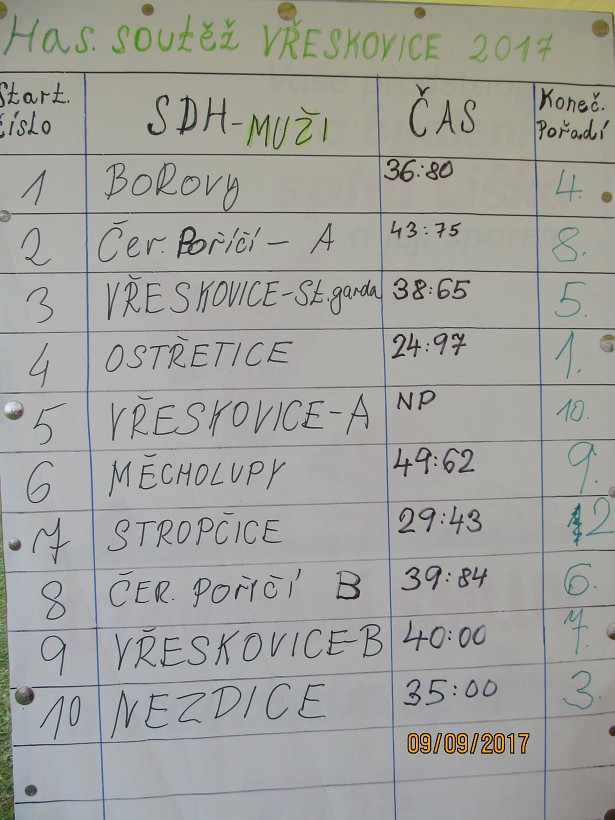 Has. soutěž VŘESKOVICE 2017
Start. číslo SDH-MUŽI ČAS Koneč. Pořadí
1 BOROVY 36:80 4.
2 Čer. Poříčí - A 43:75 8.
3 VŘESKOVICE-St.garda 38:65 5.
4 OSTŘETICE 24:97 1.
5 VŘESKOVICE-A NP 10.
6 MĚCHOLUPY 49:62 9.
7 STROPČICE 29:43 2
8 ČER. POŘÍČÍ B 39:84 6.
9 VŘESKOVICE-B 40:00 7.
10 NEZDICE 35:00 3.
09/09/2017